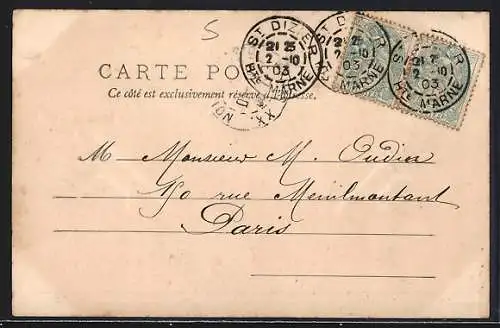 5
ST DIZIER
21 25
2 -10
03
HTE MARNE
ST DIZIER
21 25
2 -10
03
HTE MARNE
ST DIZIER
21 25
2 -10
03
HTE MARNE
CARTE PO
Ce côté est exclusivement réservé à l'adresse.
M Monsieur M. Oudin
rue Menilmontant
Paris